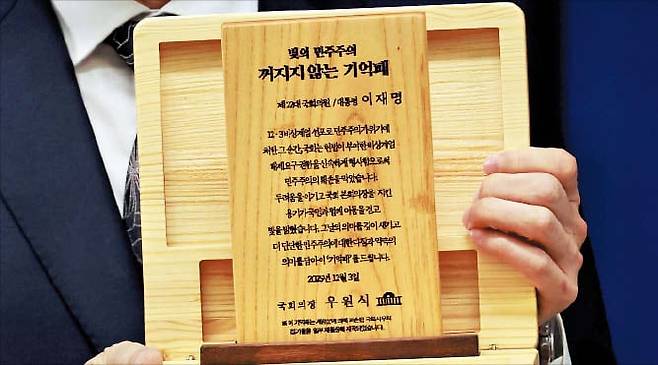 빛의 민주주의
꺼지지 않는 기억패
제22대 국회의원 / 대통령 이재명
12·3 비상계엄 선포로 민주주의가 위기에
처한 그 순간, 국회는 헌법이 부여한 비상계엄
해제요구 권한을 신속하게 행사함으로써
민주주의의 훼손을 막았습니다.
두려움을 이기고 국회 본회의장을 지킨
용기가 국민과 함께 어둠을 걷고
빛을 밝혔습니다. 그날의 의미를 깊이 새기고
더 단단한 민주주의에 대한 다짐과 약속의
의미를 담아 이 '기억패'를 드립니다.
2025년 12월 3일
국회의장 우원식
본 이 기억패는 계엄군에 의해 파손된 국회사무처
집기를 일부 재활용해 제작되었습니다.